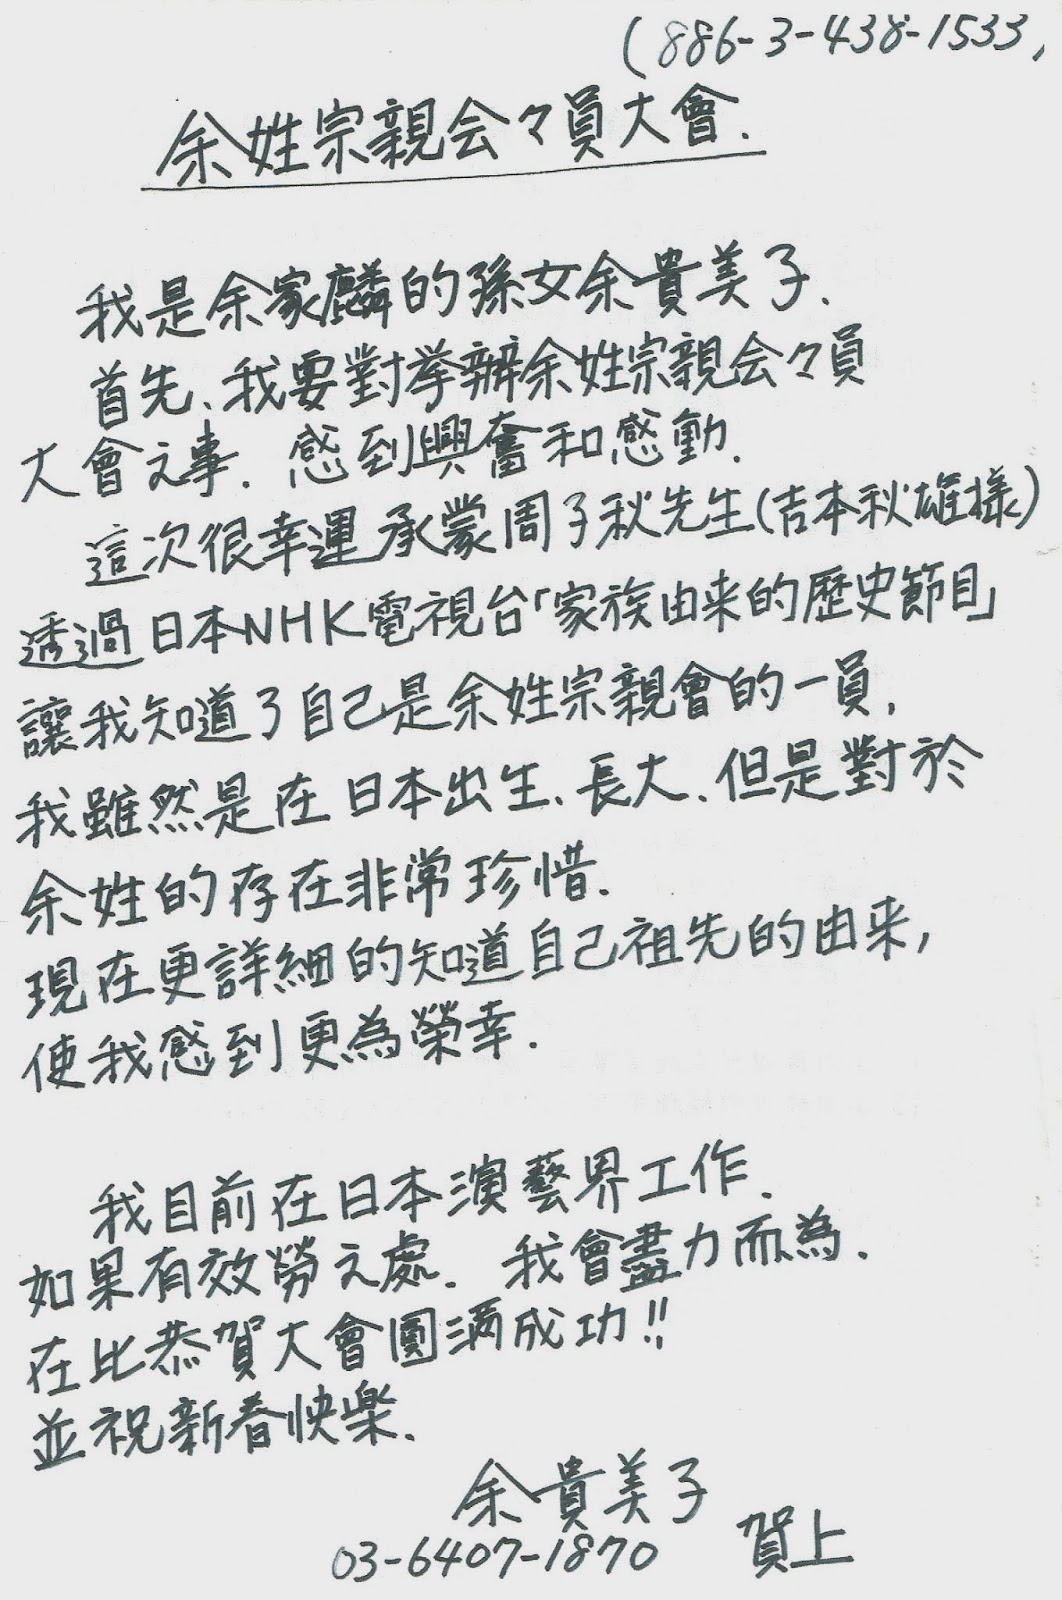 (886-3-438-1533,
余姓宗親会々員大會.
我是余家麟的孫女余貴美子.
首先、我要對挙辦余姓宗親会々員
大會之事.感到興奮和感動.
這次很幸運承蒙周子秋先生(吉本秋雄樣)
透過日本NHK電視台「家族由来的歷史節目」
讓我知道了自己是余姓宗親會的一員,
我雖然是在日本出生、長大、但是對於
余姓的存在非常珍惜.
現在更詳細的知道自己祖先的由来,
使我感到更為榮幸.
我目前在日本演藝界工作.
如果有效勞之處.我會盡力而為.
在比恭賀大會圓满成功!!
並祝新春快樂.
余貴美子
03-6407-1870 賀上